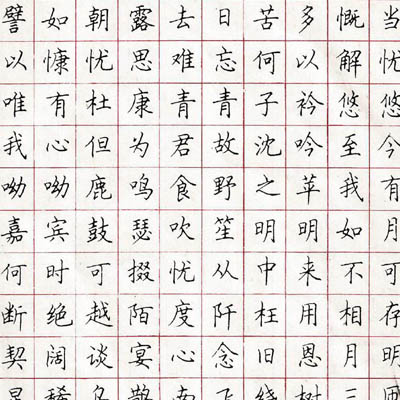 譬如朝露去日苦多慨当
以慷忧思难忘何以解忧
唯有杜康青青子衿悠悠
我心但为君故沈吟至今
呦呦鹿鸣食野之苹我有
嘉宾鼓瑟吹笙明明如月
何时可掇忧从中来不可
断绝越陌度阡枉用相存
契阔谈宴心念旧恩月明
星稀乌鹊南飞绕树三匝